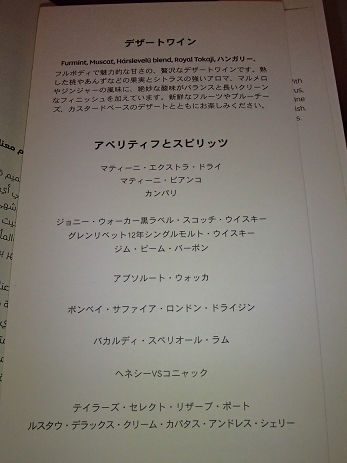 デザートワイン
Furmint, Muscat, Hárslevelű blend, Royal Tokaji, ハンガリー。
フルボディで魅力的な甘さの、贅沢なデザートワインです。熟
した桃やあんずなどの果実とシトラスの強いアロマ、マルメロ
やジンジャーの風味に、絶妙な酸味がバランスと長いクリーン
なフィニッシュを加えています。新鮮なフルーツやブルーチー
ズ、カスタードベースのデザートとともにお楽しみください。
アペリティフとスピリッツ
マティーニ・エクストラ・ドライ
マティーニ・ビアンコ
カンパリ
ジョニー・ウォーカー黒ラベル・スコッチ・ウイスキー
グレンリベット12年シングルモルト・ウイスキー
ジム・ビーム・バーボン
アブソルート・ウォッカ
ボンベイ・サファイア・ロンドン・ドライジン
バカルディ・スペリオール・ラム
ヘネシーVSコニャック
テイラーズ・セレクト・リザーブ・ポート
ルスタウ・デラックス・クリーム・カパタス・アンドレス・シェリー